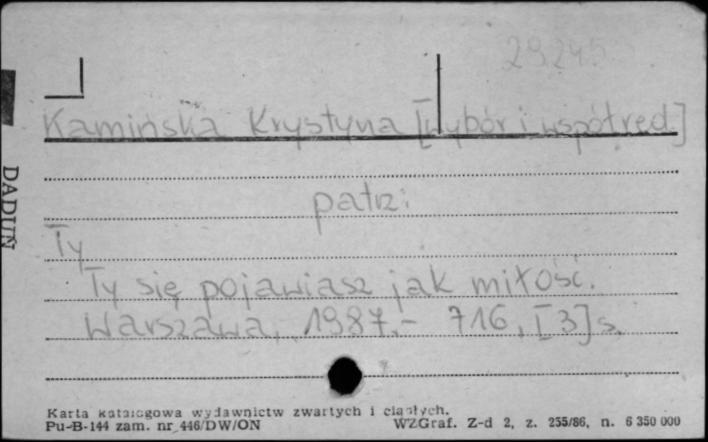 29245
Kamińska Krystyna [wybór i współred.]
patrz:
Ty
Ty się pojawiasz jak miłość.
Warszawa, 1987.- 716, [3] s.
DADUŃ
Karta katalogowa wydawnictw zwartych i ciągłych.
Pu-B-144 zam. nr 446/DW/ON WZGraf. Z-d 2, z. 255/86, n. 6 350 000